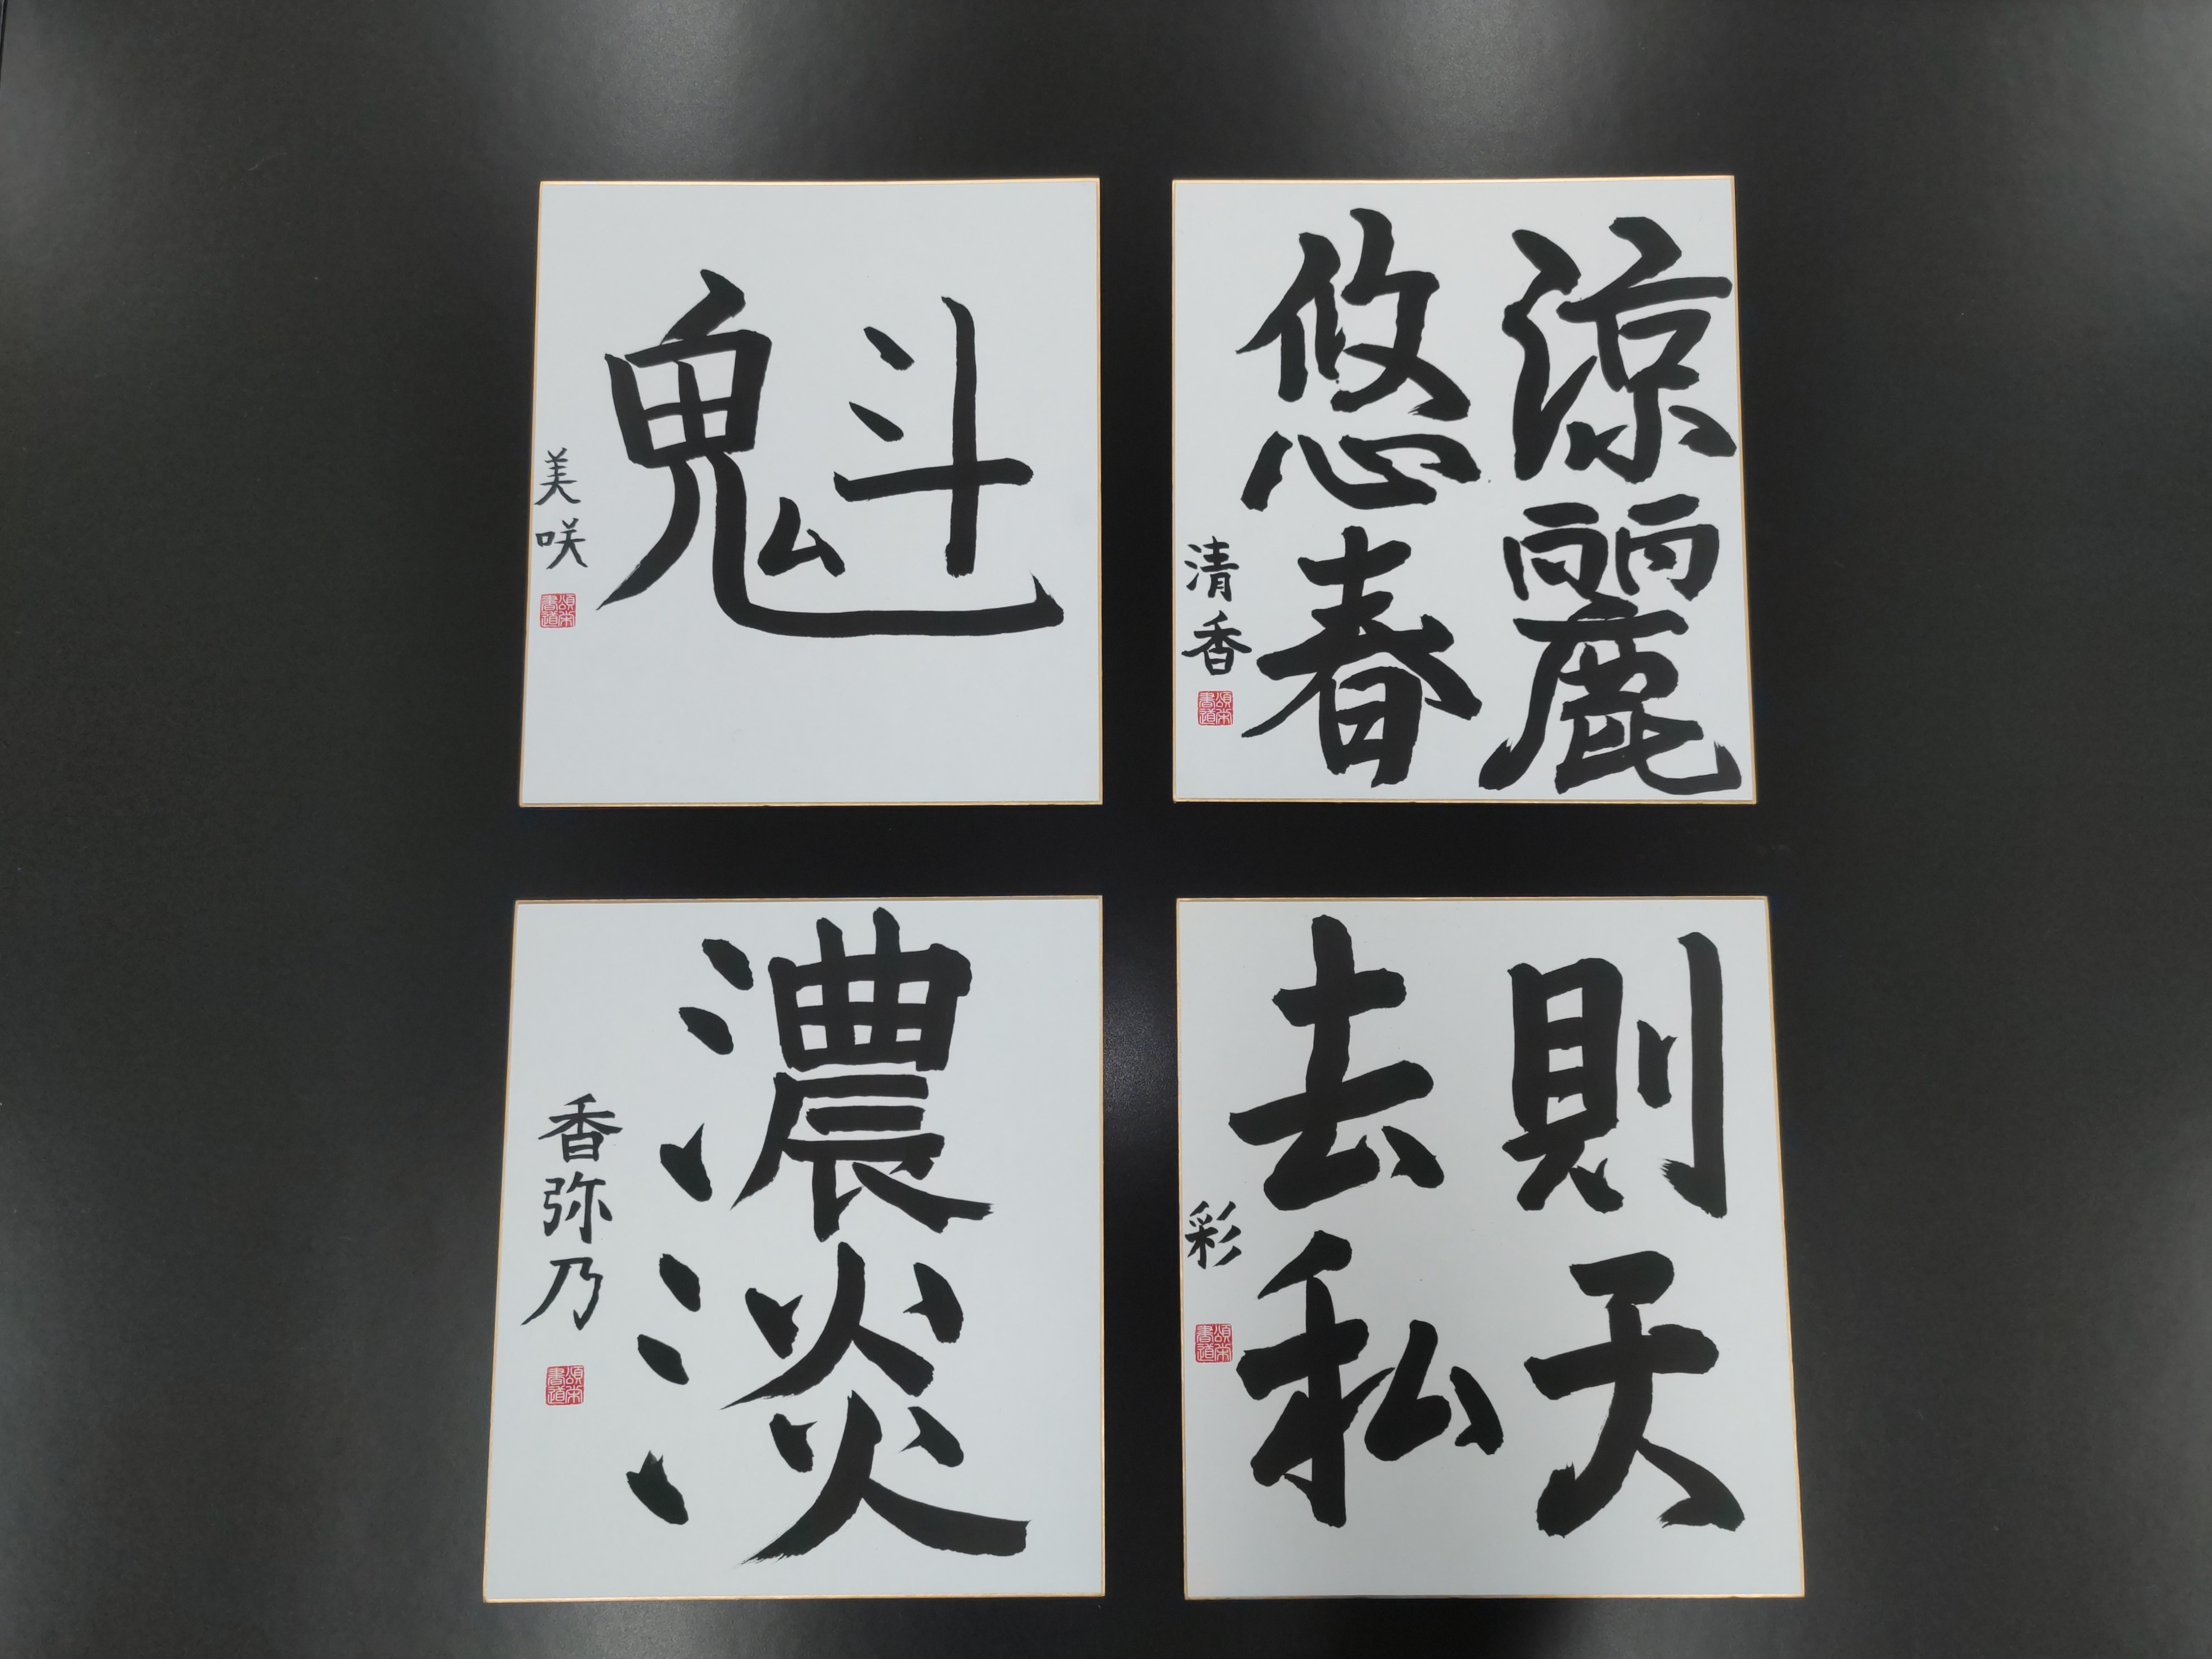 魁
美咲
涼麗
悠春
清香
濃淡
香弥乃
則天
去私
彩